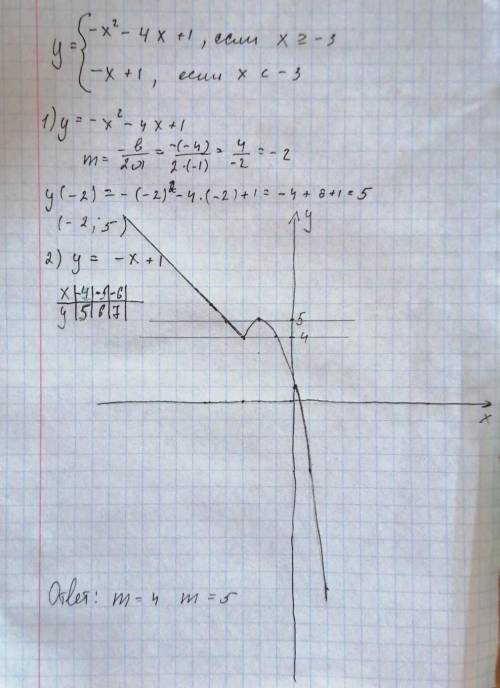 y = { -x² - 4x + 1, если x ≥ -3
-x + 1, если x < -3
1) y = -x² - 4x + 1
m = -b/2a = -(-4)/2·(-1) = 4/-2 = -2
y(-2) = -(-2)² - 4·(-2) + 1 = -4 + 8 + 1 = 5
(-2; 5)
2) y = -x + 1
x | -4 | -5 | -6 |
y | 5 | 6 | 7 |
y
5
4
x
Ответ: m = 4 m = 5